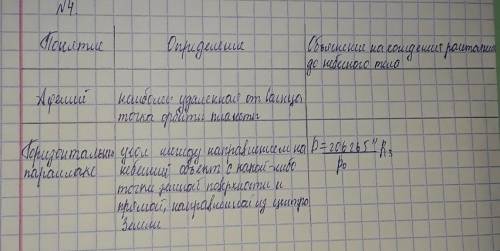 №4.
Понятие
Определение
Объяснение нахождения расстояния
до небесного тела
Афелий
наиболее удаленная от солнца
точка орбиты планеты
Горизонтальный
параллакс
угол между направлением на
небесный объект с какой-либо
точки земной поверхности и
прямой, направленной из центра
Земли
D = 206265" R₃
p₀